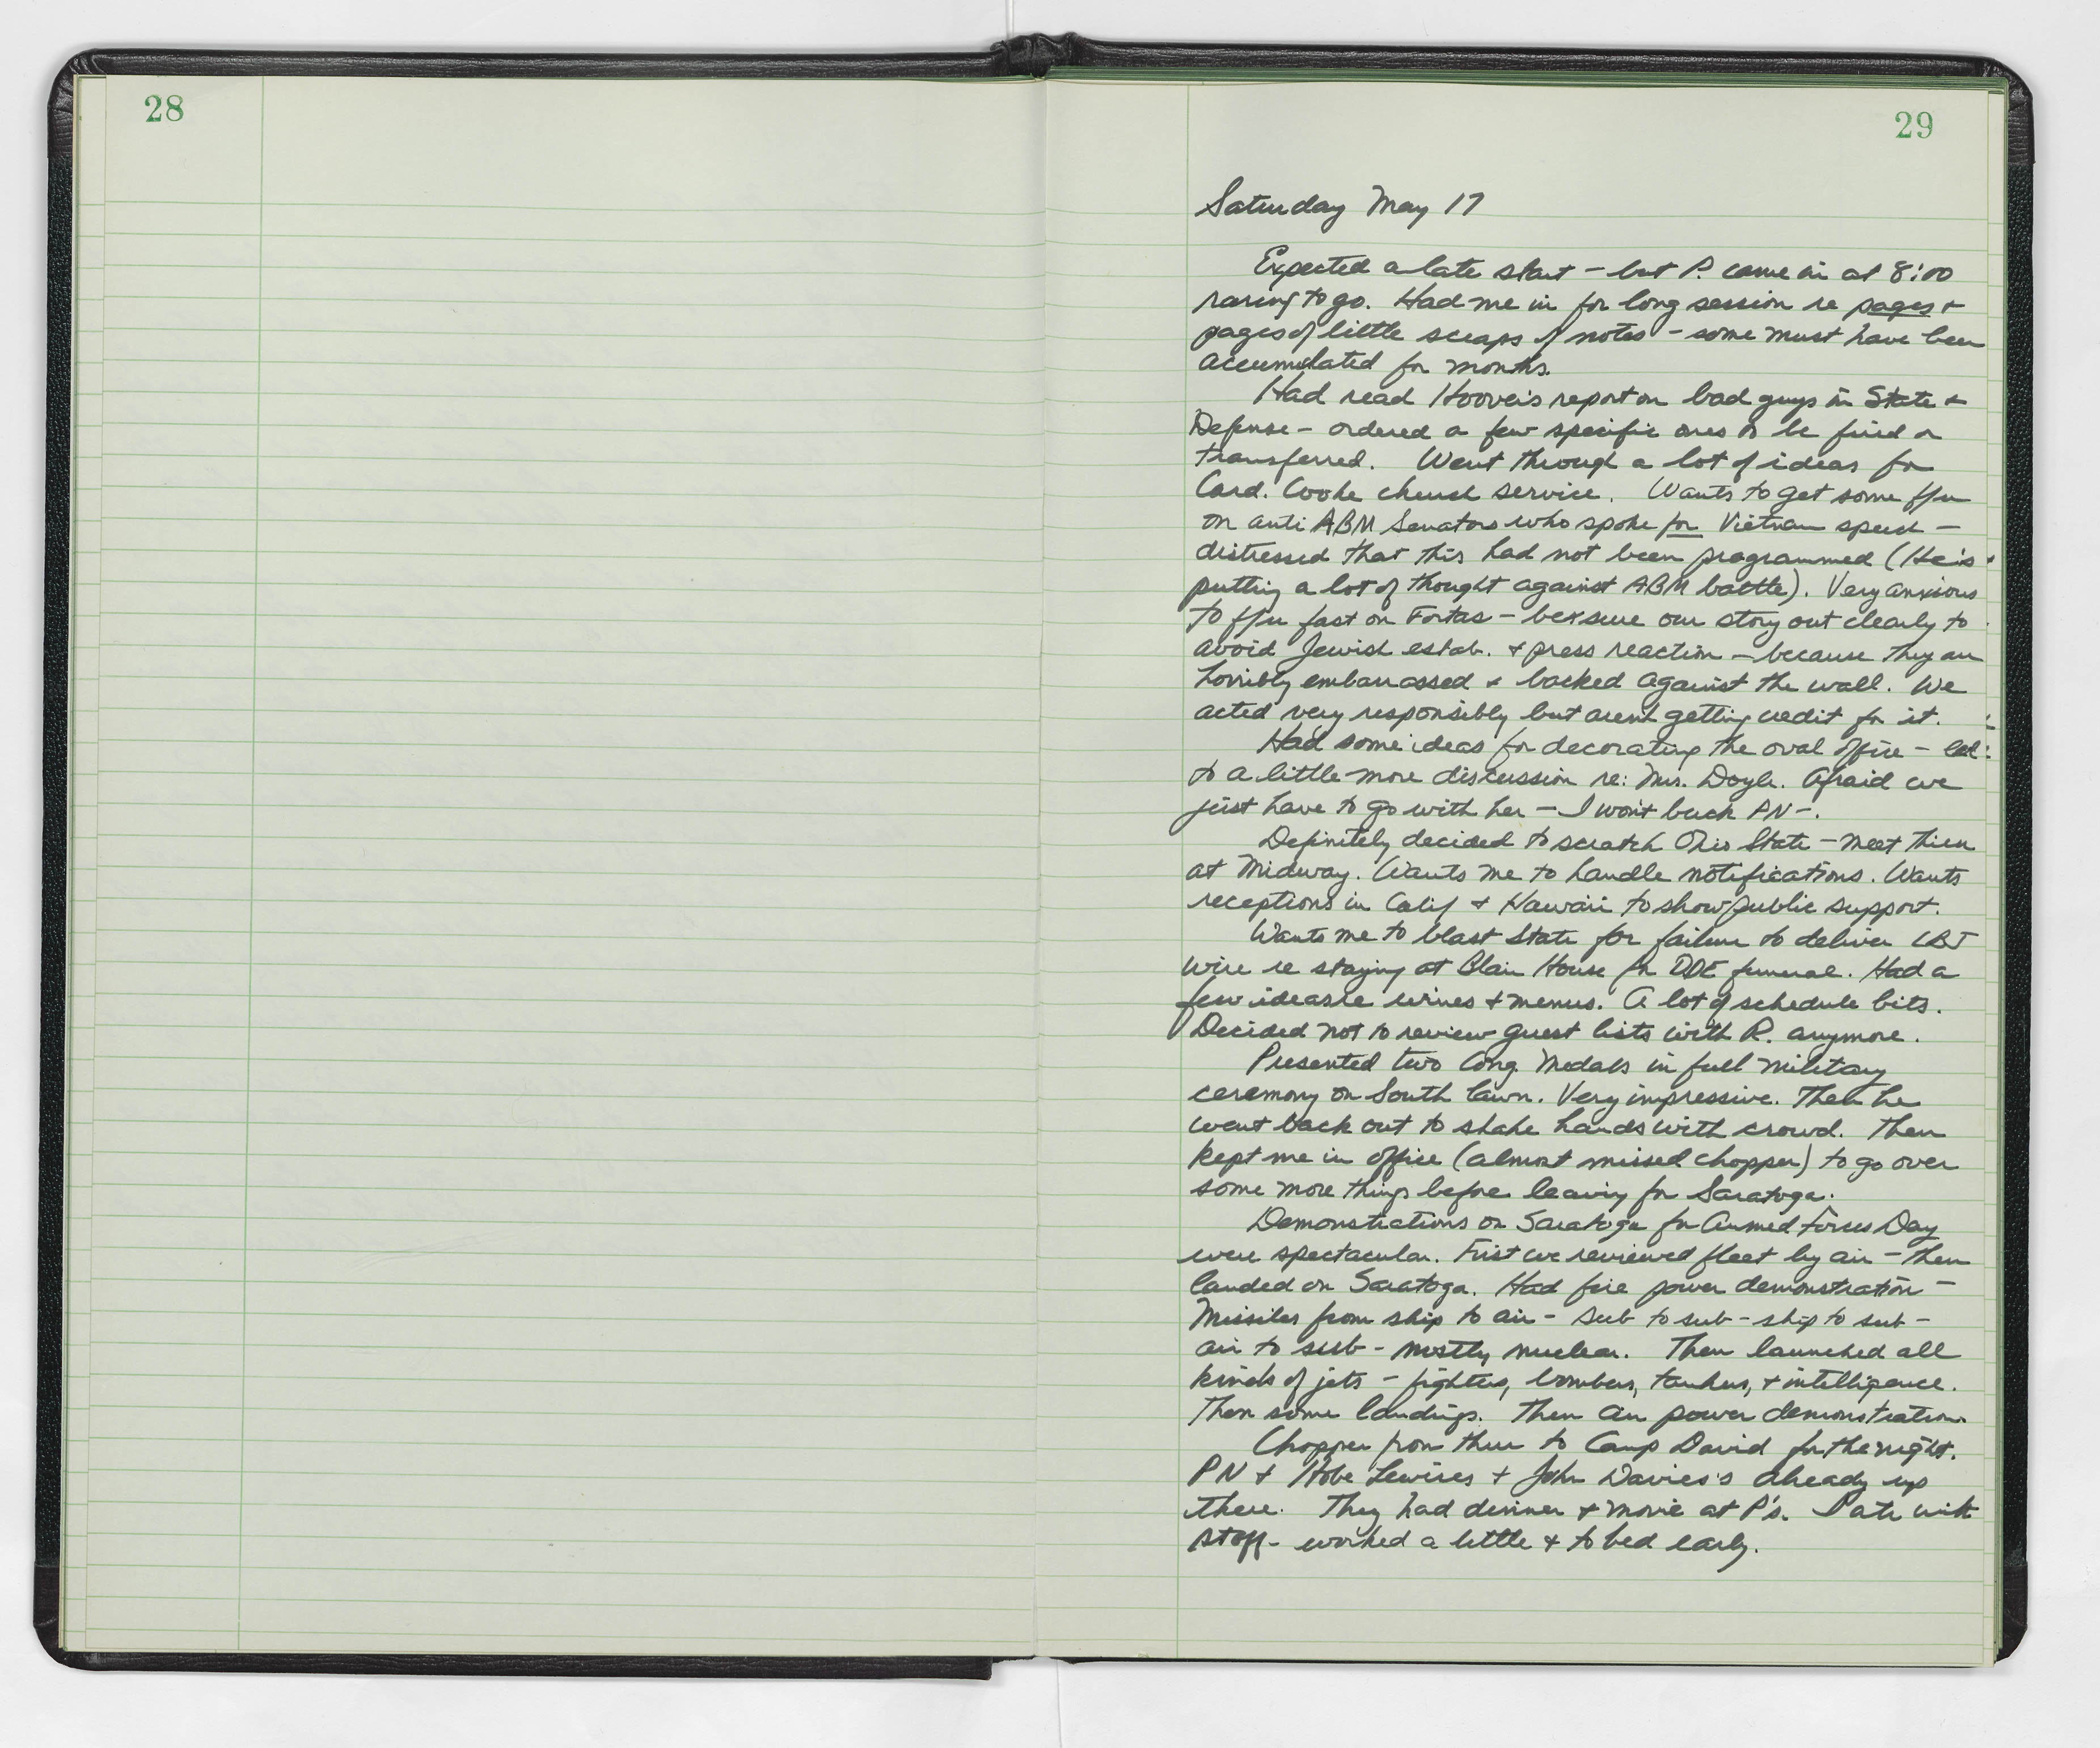 28
29
Saturday May 17
Expected a late start - but P. came in at 8:00
raring to go. Had me in for long session re pages +
pages of little scraps of notes - some must have been
accumulated for months.
Had read Hoover's report on bad guys in State +
Defense - ordered a few specific ones to be fired or
transferred. Went through a lot of ideas for
Card. Cooke church service. Wants to get some f/u
on anti ABM Senators who spoke for Vietnam speech -
distressed that this had not been programmed (He is
putting a lot of thought against ABM battle). Very anxious
to f/u fast on Fortas - be sure our story out clearly to
avoid Jewish estab. + press reaction - because they are
horribly embarrassed + backed against the wall. We
acted very responsibly but aren't getting credit for it.
Had some ideas for decorating the oval office - led
to a little more discussion re: Mrs. Doyle. Afraid we
just have to go with her - I won't buck PN -.
Definitely decided to scratch Ohio State - meet Thieu
at Midway. Wants me to handle notifications. Wants
receptions in Calif + Hawaii to show public support.
Wants me to blast State for failure to deliver LBJ
wire re staying at Blair House for DDE funeral. Had a
few ideas re wines + menus. A lot of schedule bits.
Decided not to review guest lists with P. anymore.
Presented two Cong. Medals in full military
ceremony on South lawn. Very impressive. Then he
went back out to shake hands with crowd. Then
kept me in office (almost missed chopper) to go over
some more things before leaving for Saratoga.
Demonstrations on Saratoga for Armed Forces Day
were spectacular. First we reviewed fleet by air - then
landed on Saratoga. Had fire power demonstration -
Missiles from ship to air - sub to sub - ship to sub -
air to sub - mostly nuclear. Then launched all
kinds of jets - fighters, bombers, tankers, + intelligence.
Then some landings. Then air power demonstration.
Chopper from there to Camp David for the night.
PN + Hobe Lewises + John Davies's already up
there. They had dinner + movie at P's. I ate with
staff - worked a little + to bed early.